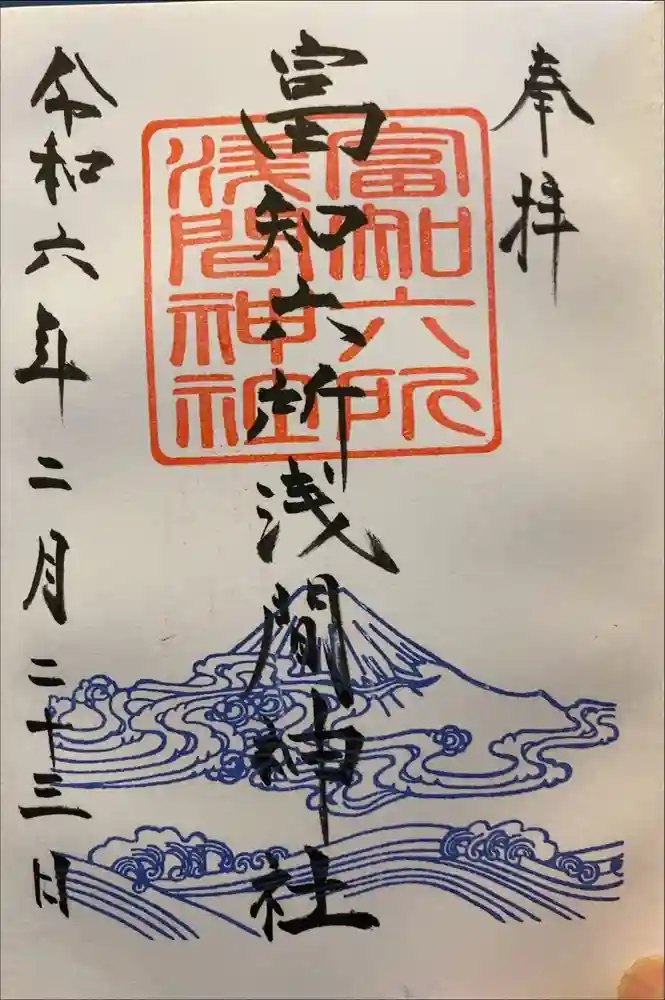 奉拝
富知六所浅間神社
富知六所
浅間神社
令和六年二月二十三日